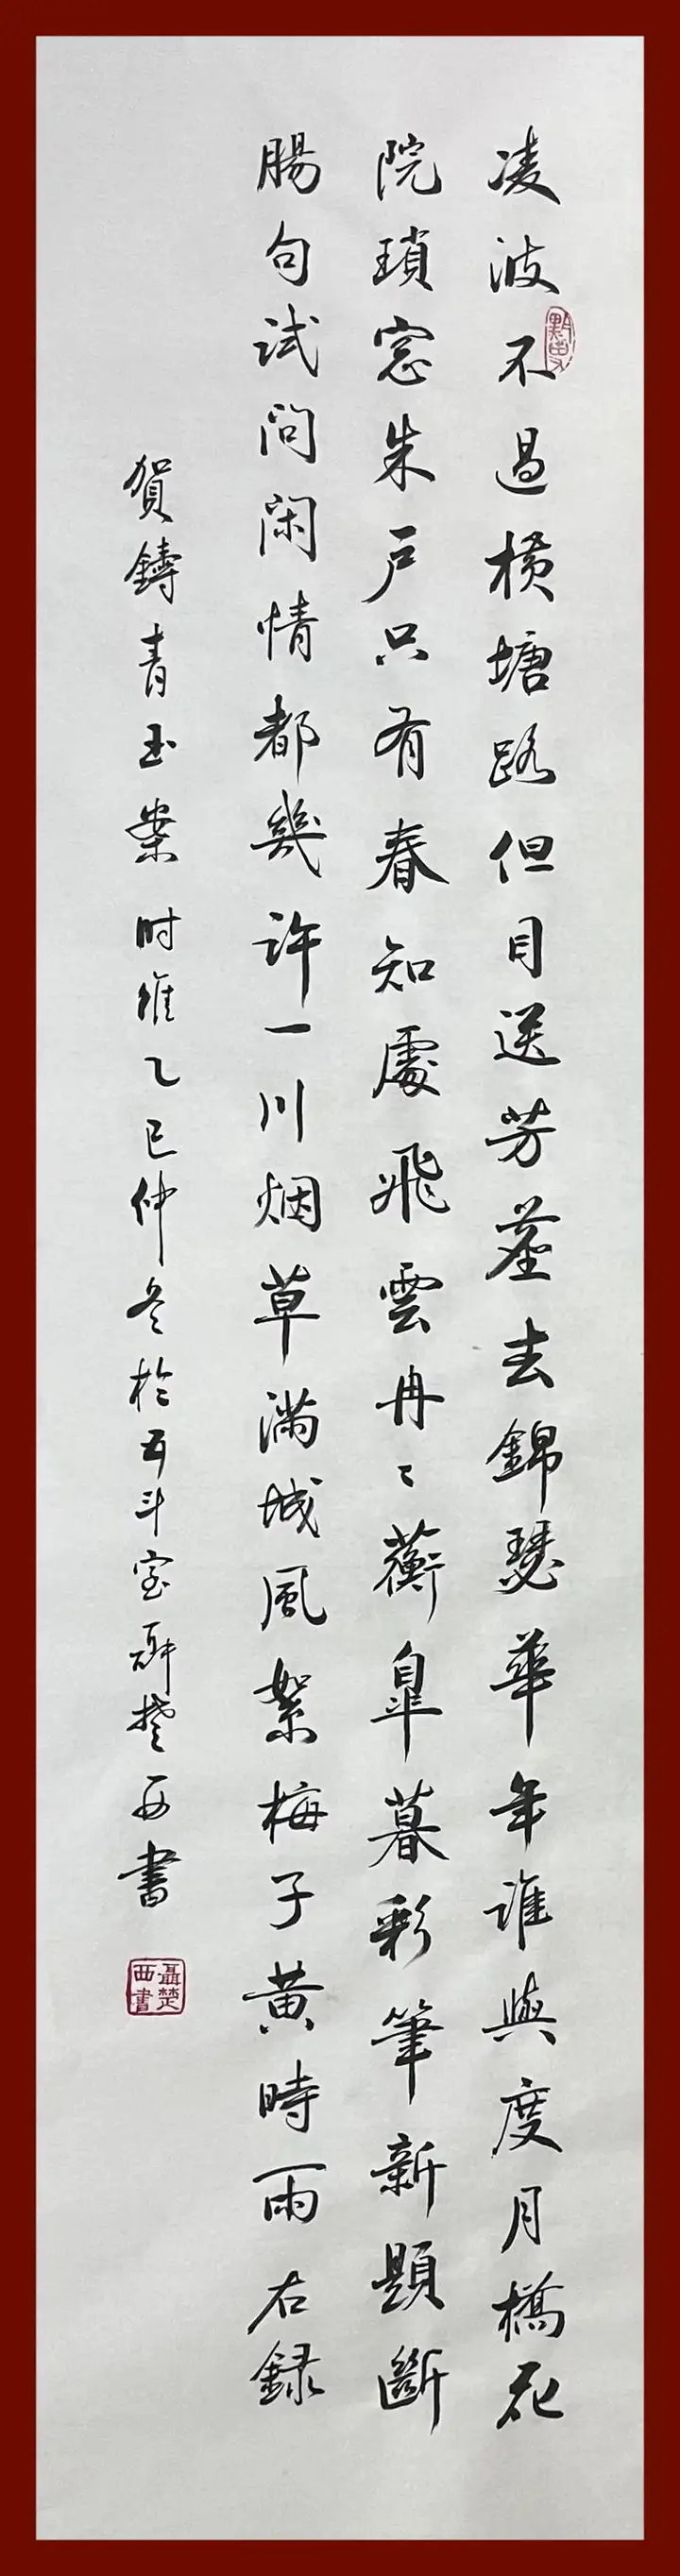 凌波不過橫塘路但目送芳塵去錦瑟華年誰與度月橋花
院瑣窓朱戶只有春知處飛雲冉〻蘅皐暮彩筆新題斷
腸句試問閑情都幾許一川烟草滿城風絮梅子黃時雨右録
賀鑄青玉案时维乙巳仲冬於五斗室聶楚西書
聶楚西書